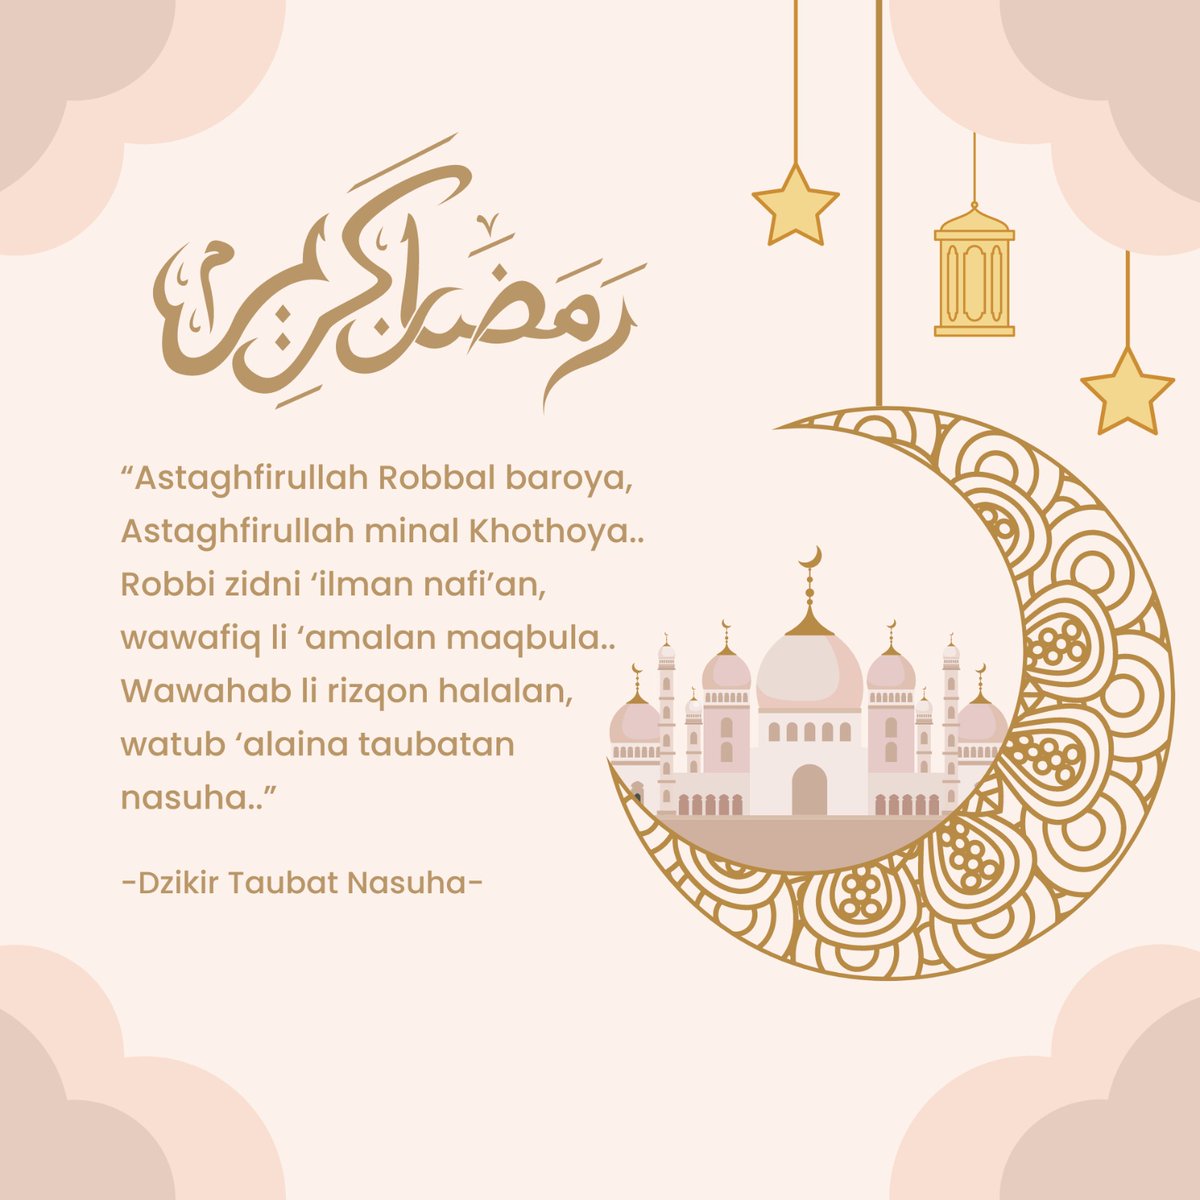 رمضان كريم
“Astaghfirullah Robbal baroya,
Astaghfirullah minal Khothoya..
Robbi zidni ‘ilman nafi’an,
wawafiq li ‘amalan maqbula..
Wawahab li rizqon halalan,
watub ‘alaina taubatan
nasuha..”
-Dzikir Taubat Nasuha-